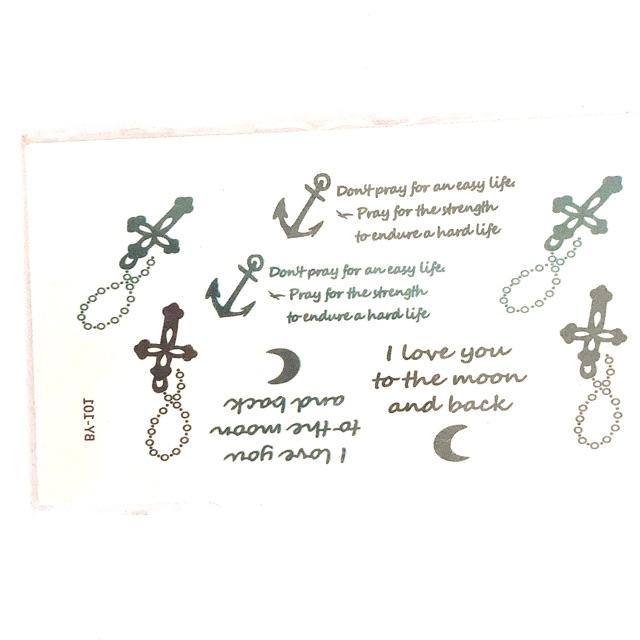 Don't pray for an easy life.
Pray for the strength
to endure a hard life
Don't pray for an easy life.
Pray for the strength
to endure a hard life
I love you
to the moon
and back
I love you
to the moon
and back
BY-101